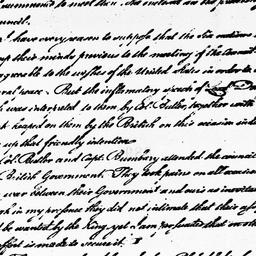 recommend to meet them
council.
I have every reason to suppose that the Six nations
up their minds previous to the meeting of the Commis
agreeable to the wishes of the United States in order to a
neral peace. But the inflammatory speech of
h was interpreted to them by Col. Butler, together with
k heaped on them by the British on this occasion indu
up that friendly intention
Col. Butler and Capt. Bunbury attended the council
British Government. They took pains on all occasion
war between their Government and ours is inevitab
gh in my presence they did not intimate that their
be wanted by the King, yet I am persuaded that
effort is made to secure it.